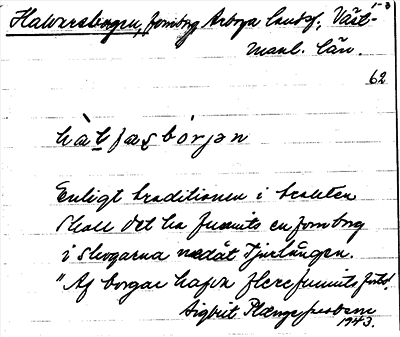 Halvarsborgen, fornborg Arboga landsf., Väst-
manl. län.
62
Enligt traditionen i trakten
skall det ha funnits en fornborg
i skogarna nedåt Tjurlången.
"Af borgar hafva flere funnits förts.
Sigbrit Plænge
1943.